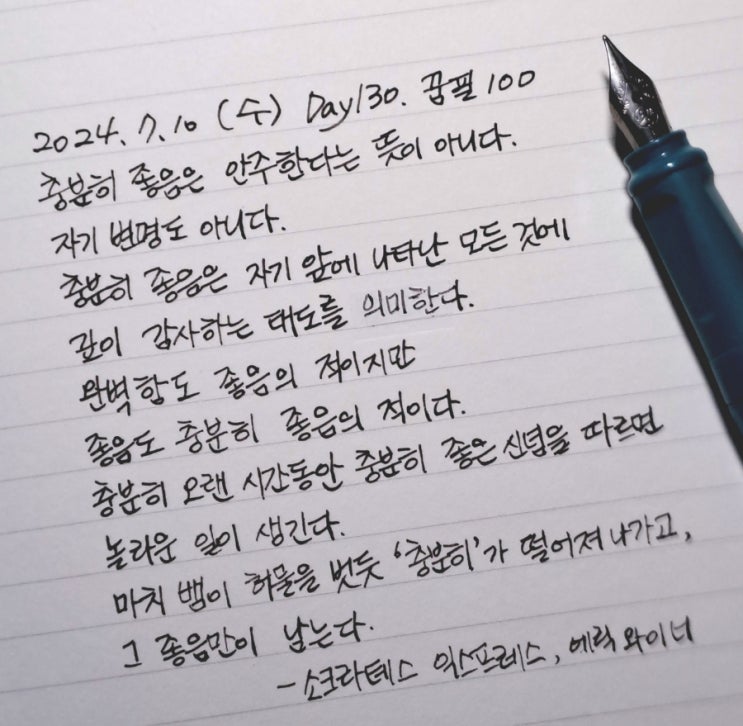 2024. 7. 10 (수) Day130. 꿈필 100
충분히 좋음은 안주한다는 뜻이 아니다.
자기 변명도 아니다.
충분히 좋음은 자기 앞에 나타난 모든 것에
깊이 감사하는 태도를 의미한다.
완벽함도 좋음의 적이지만
좋음도 충분히 좋음의 적이다.
충분히 오랜 시간동안 충분히 좋은 신념을 따르면
놀라운 일이 생긴다.
마치 뱀이 허물을 벗듯 '충분히'가 떨어져 나가고,
그 좋음만이 남는다.
- 소크라테스 익스프레스, 에릭 와이너